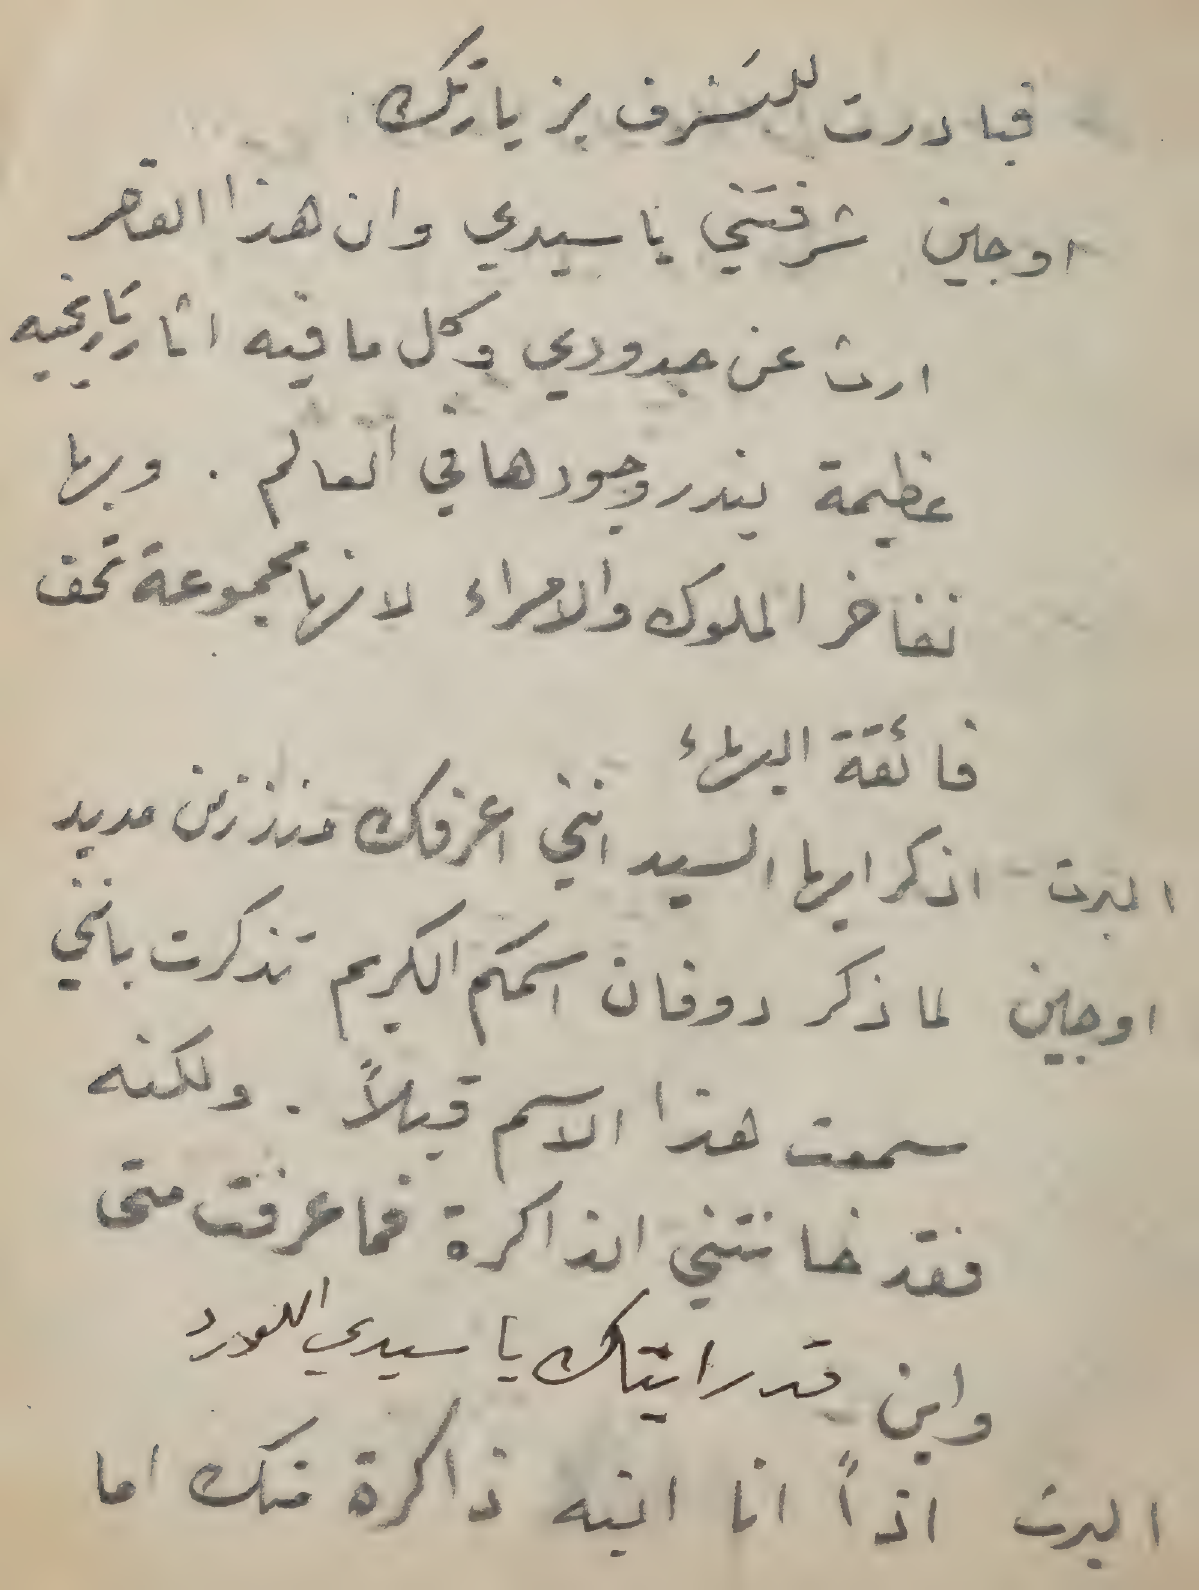 فبادرت للتشرف بزيارتك
اوجين شرفتني يا سيدي وان هذا القصر
ارث عن جدودي وكل ما فيه اثار تاريخيه
عظيمة يندر وجودها في العالم . وبها
تفاخر الملوك والامراء لانها مجموعة تحف
فائقة البهاء
البرت - اذكر ايها السيد انني اعرفك منذ زمن مديد
اوجين لما ذكر دوفان اسمكم الكريم تذكرت بانني
سمعت هذا الاسم قبلاً . ولكنه
فقد خانتني الذاكرة فما عرفت متى
واين قد رايتك يا سيدي اللورد
البرت اذاً انا انبه ذاكرة منك اما